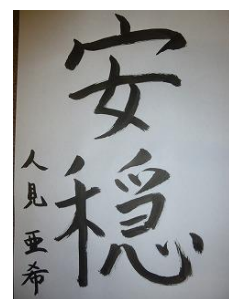 安穏
人見 亜希